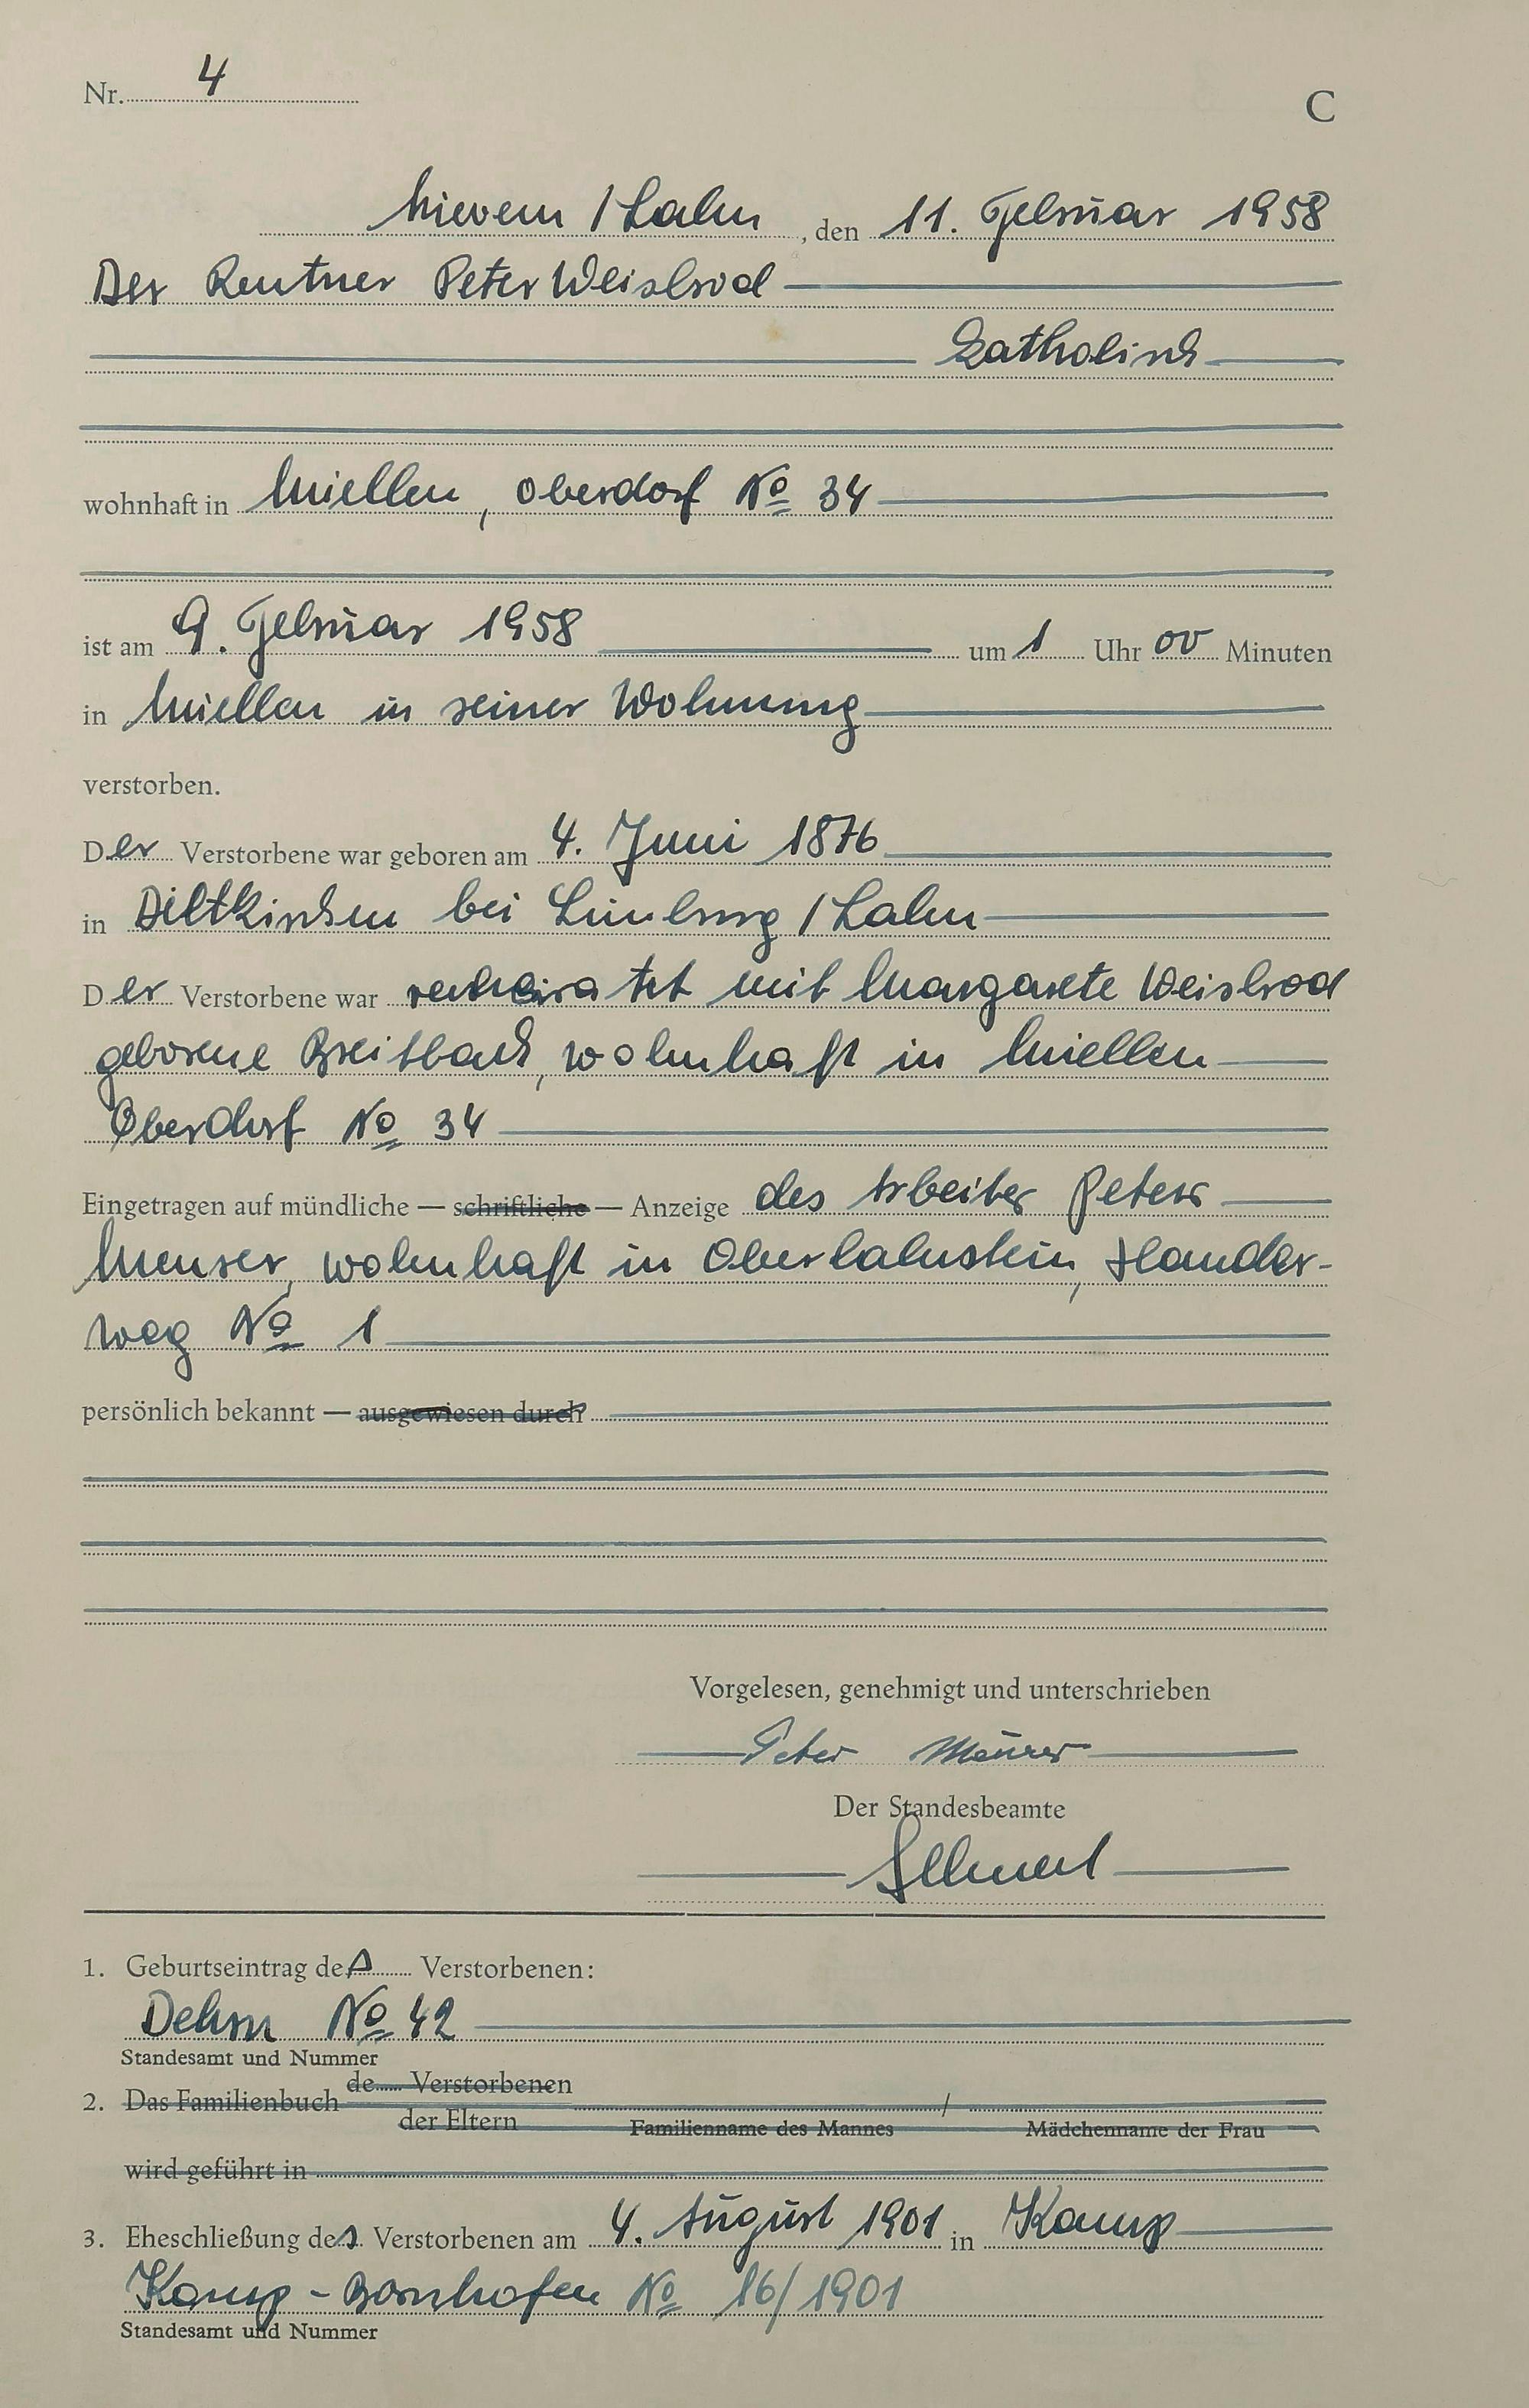 Nr. 4
C
Nievern / Lahn, den 11. Februar 1958
Der Rentner Peter Weisbrod
katholisch
wohnhaft in Miellen, Oberdorf No 34
ist am 9. Februar 1958 um 1 Uhr 00 Minuten
in Miellen in seiner Wohnung
verstorben.
Der Verstorbene war geboren am 4. Juni 1876
in Dietkirchen bei Limburg / Lahn
Der Verstorbene war verheiratet mit Margarete Weisbrod
geborene Breitbach, wohnhaft in Miellen
Oberdorf No 34
Eingetragen auf mündliche — schriftliche — Anzeige des Arbeiter Peter
Meurer, wohnhaft in Oberlahnstein,
weg No 1
persönlich bekannt — ausgewiesen durch
Vorgelesen, genehmigt und unterschrieben
Peter Meurer
Der Standesbeamte
1. Geburtseintrag des Verstorbenen:
Dehrn No 42
Standesamt und Nummer
2. Das Familienbuch de Verstorbenen
der Eltern / Familienname des Mannes Mädchenname der Frau
wird geführt in
3. Eheschließung des Verstorbenen am 4. August 1901 in Kamp
Kamp - Bornhofen No 16/1901
Standesamt und Nummer